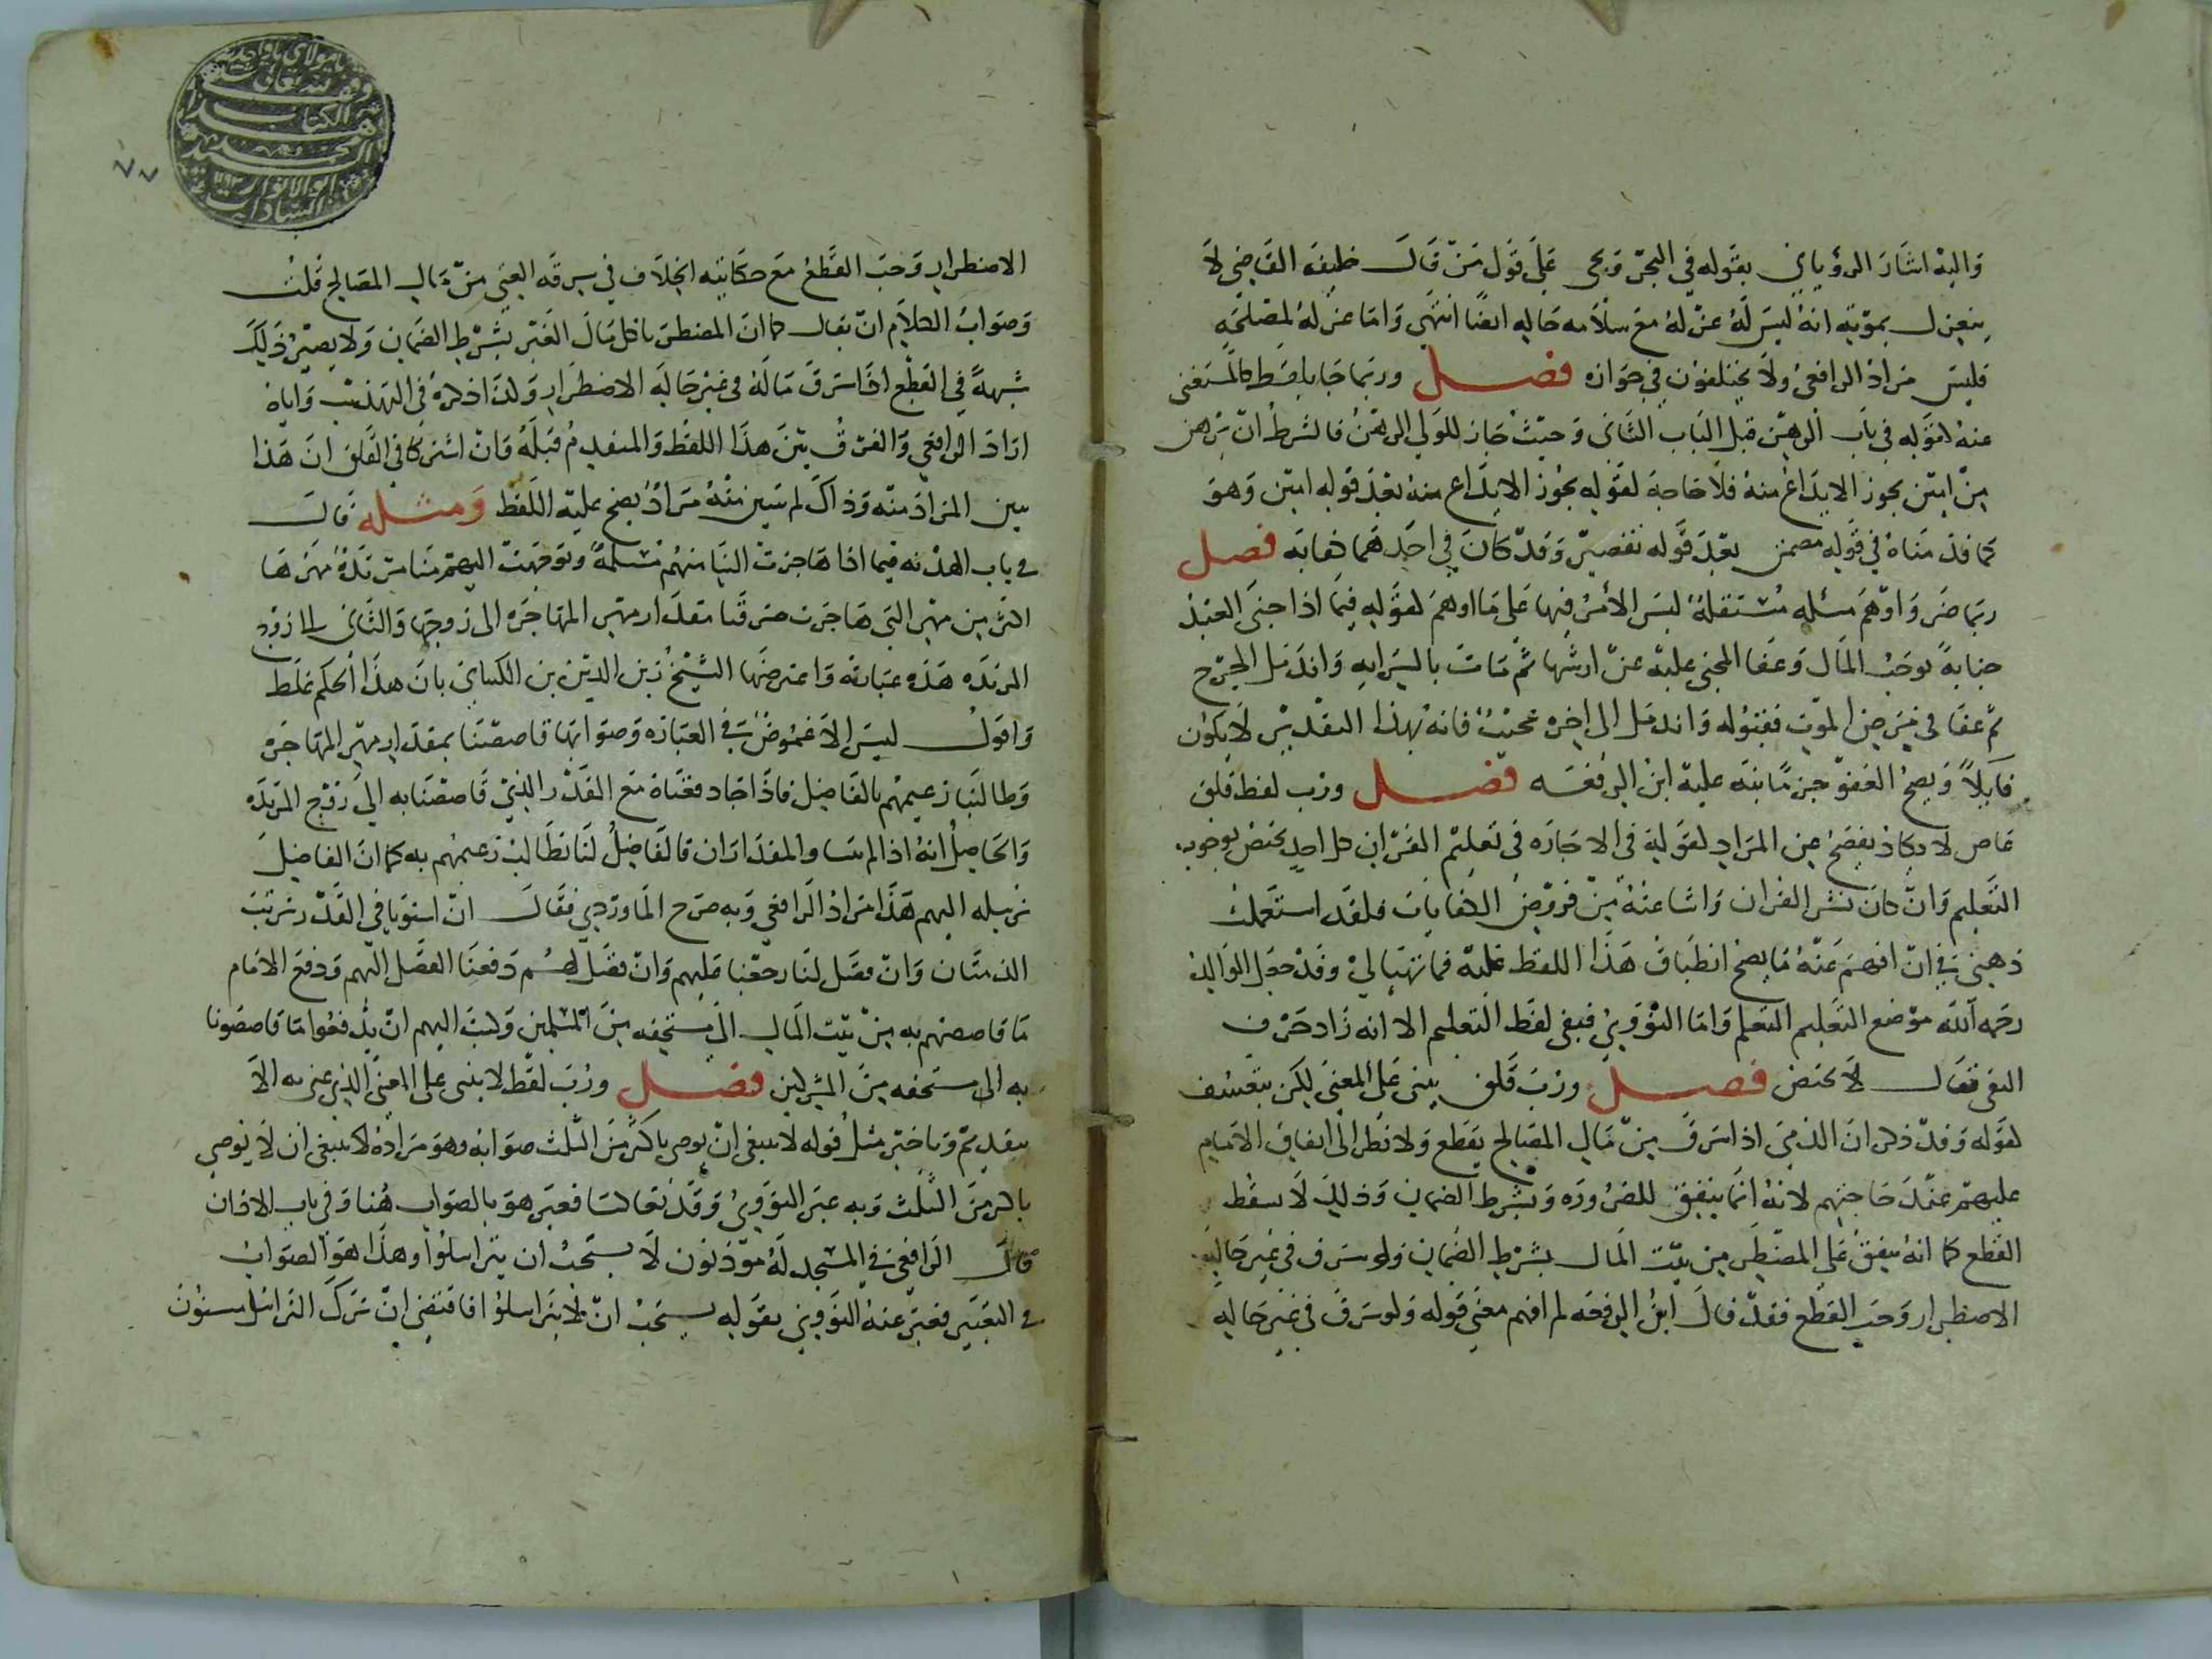 واليه اشار الروياني بقوله في البحر ويجي على قول من قال خليفة القاضي لا
ينعزل بموته انه ليس له عزله مع سلامه حاله ايضا انتهى واما عزله لمصلحه
فليس مراد الرافعي ولا يختلفون في جوازه فصل وربما جا بلفظ كالمستغنى
عنه لقوله في باب الرهن قبل الباب الثاني وحيث جاز للولي الرهن فالشرط ان يرهن
من امين يجوز الايداع منه فلا حاجة لقوله يجوز الايداع منه بعد قوله امين وهو
كما قدمناه في قوله مضمن بعد قوله تفصيل وقد كان في احدهما كفايه فصل
ربما ضر واوهم مسئله مستقلة ليس الامر فيها على ما اوهم لقوله فيما اذا جنى العبد
جناية توجب المال وعفا المجني عليه عن ارشها ثم مات بالسرايه واندمل الجرح
ثم عفا في مرض الموت فقوله واندمل الى اخره فانه بهذا التقدير لا يكون
قاتلا ويصح العفو جزما نبه عليه ابن الرفعه فصل ورب لفظ قلق
غامض لا يكاد يفصح عن المراد لقوله في الاجاره في تعليم القران كل احد يختص بوجوب
التعليم وان كان نشر القران واشاعته من فروض الكفايات فلقد استعملت
ذهني في ان افهم عنه ما يصح انطباق هذا اللفظ عليه فما تهيا لي وقد جعل الوالد
رحمه الله موضع التعليم التعلم واما النووي فبقى لفظ التعليم الا انه زاد حرف
النفي فقال لا يختص فصل ورب قلق يبنى على المعنى لكن بتعسف
لقوله وقد ذكر ان الذمي اذا سرق من مال المصالح يقطع ولا نظر الى انفاق الامام
عليهم عند حاجتهم لانه انما ينفق للضروره وبشرط الضمان وذلك لا يسقط
القطع كما انه ينفق على المضطر من بيت المال بشرط الضمان ولو سرق في غير حالة
الاضطرار وجب القطع فقد قال ابن الرفعه لم افهم معنى قوله ولو سرق في غير حاله
يا مولاي يا واحد
وقف لله تعالى
هذا الكتاب
السيد محمد
ابو الانوار
السادات
٧٧
الاضطرار وجب القطع مع حكايته الخلاف في سرقه الغني من مال المصالح قلت
وصواب الكلام ان يقال كما ان المضطر ياكل مال الغير بشرط الضمان ولا يصير ذلك
شبهة في القطع اذا سرق ماله في غير حاله الاضطرار ولذا ذكره في التهذيب واياه
اراد الرافعي والفرق بين هذا اللفظ والمتقدم قبله وان اشتركا في القلق ان هذا
يبين المراد منه وذاك لم يتبين منه مراد يصح عليه اللفظ ومثله قال
في باب الهدنه فيما اذا هاجرت الينا منهم مسلمة وتوجهت اليهم منا مرتدة مهرها
اكثر من مهر التي هاجرت صرفنا مقدار مهر المهاجره الى زوجها والثاني الى زوج
المرتده هذه عبارته واعترضها الشيخ زين الدين بن الكتاني بان هذا الحكم غلط
واقول ليس الا غموض في العبارة وصوابها قاصصنا بمقدار مهر المهاجره
وطالبنا زعيمهم بالفاضل فاذا جاد دفعناه مع القدر الذي قاصصنا به الى زوج المرتده
والحاصل انه اذا لم يتساو المقداران فالفاضل لنا نطالب زعيمهم به كما ان الفاضل
نرسله اليهم هذا مراد الرافعي وبه صرح الماوردي فقال ان استويا في القدر ترتب
الذمتان وان فضل لنا رجعنا عليهم وان فضل لهم دفعنا الفضل اليهم ودفع الامام
ما قاصصهم به من بيت المال الى مستحقه من المسلمين وكتب اليهم ان يدفعوا ما قاصصونا
به الى مستحقه من المشركين فصل ورب لفظ لا يبنى على المعنى الذي عنى به الا
بتقديم وتاخير مثل قوله لا ينبغي ان يوصي باكثر من الثلث صوابه وهو مراده ينبغي ان لا يوصي
باكثر من الثلث وبه عبر النووي وقد تعاكسا فعبر هو بالصواب هنا وفي باب الاذان
قال الرافعي في المسجد له مؤذنون لا يستحب ان يتراسلوا وهذا هو الصواب
في التعبير فعبر عنه النووي بقوله يستحب ان لا يتراسلوا فاقتضى ان ترك التراسل مسنون